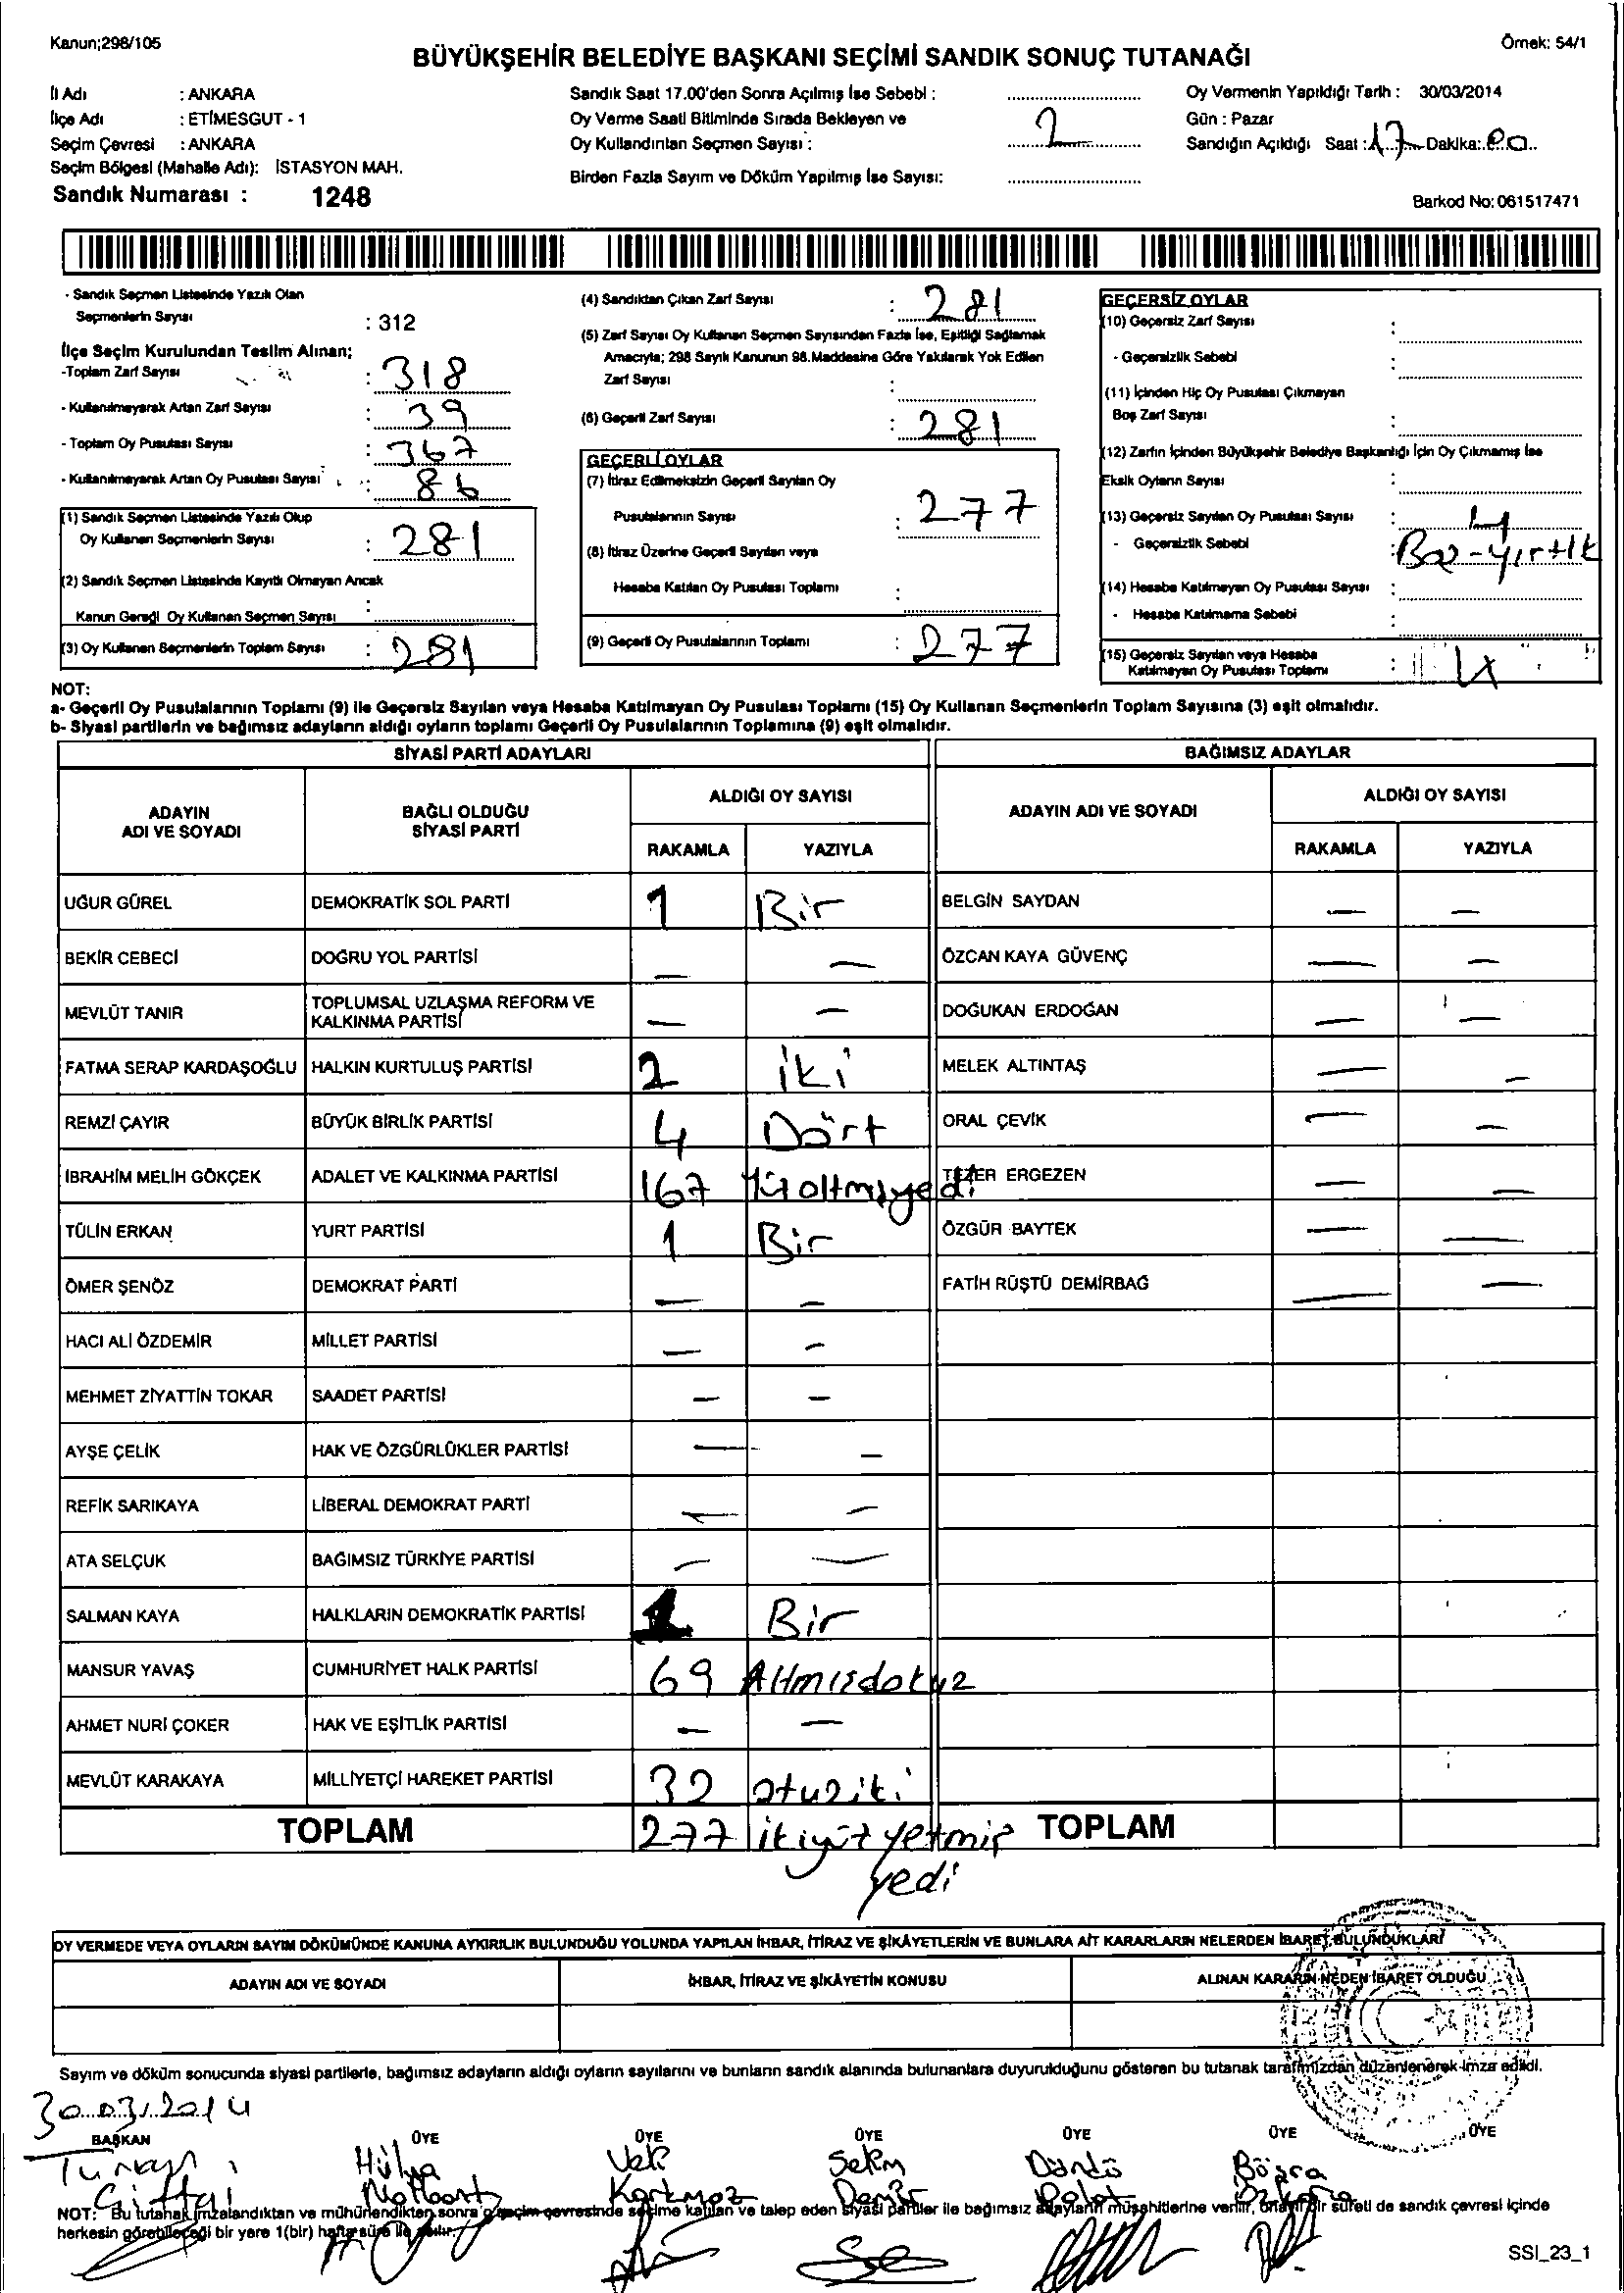 Kanun;298/105
Örnek: 54/1
BÜYÜKŞEHİR BELEDİYE BAŞKANI SEÇİMİ SANDIK SONUÇ TUTANAĞI
İl Adı : ANKARA
İlçe Adı : ETİMESGUT - 1
Seçim Çevresi : ANKARA
Seçim Bölgesi (Mahalle Adı): İSTASYON MAH.
Sandık Numarası : 1248
Sandık Saat 17.00'den Sonra Açılmış İse Sebebi :
Oy Verme Saati Bitiminde Sırada Bekleyen ve
Oy Kullandırılan Seçmen Sayısı : 2
Birden Fazla Sayım ve Döküm Yapılmış İse Sayısı:
Oy Vermenin Yapıldığı Tarih : 30/03/2014
Gün : Pazar
Sandığın Açıldığı Saat : 17 Dakika: 00
Barkod No: 061517471
- Sandık Seçmen Listesinde Yazılı Olan
Seçmenlerin Sayısı : 312
İlçe Seçim Kurulundan Teslim Alınan;
-Toplam Zarf Sayısı : 318
- Kullanılmayarak Artan Zarf Sayısı : 39
- Toplam Oy Pusulası Sayısı : 367
- Kullanılmayarak Artan Oy Pusulası Sayısı : 86
(1) Sandık Seçmen Listesinde Yazılı Olup
Oy Kullanan Seçmenlerin Sayısı : 281
(2) Sandık Seçmen Listesinde Kayıtlı Olmayan Ancak
Kanun Gereği Oy Kullanan Seçmen Sayısı :
(3) Oy Kullanan Seçmenlerin Toplam Sayısı : 281
(4) Sandıktan Çıkan Zarf Sayısı : 281
(5) Zarf Sayısı Oy Kullanan Seçmen Sayısından Fazla İse, Eşitliği Sağlamak
Amacıyla; 298 Sayılı Kanunun 98.Maddesine Göre Yakılarak Yok Edilen
Zarf Sayısı :
(6) Geçerli Zarf Sayısı : 281
GEÇERLİ OYLAR
(7) İtiraz Edilmeksizin Geçerli Sayılan Oy
Pusulalarının Sayısı : 277
(8) İtiraz Üzerine Geçerli Sayılan veya
Hesaba Katılan Oy Pusulası Toplamı :
(9) Geçerli Oy Pusulalarının Toplamı : 277
GEÇERSİZ OYLAR
(10) Geçersiz Zarf Sayısı :
- Geçersizlik Sebebi :
(11) İçinden Hiç Oy Pusulası Çıkmayan
Boş Zarf Sayısı :
(12) Zarfın İçinden Büyükşehir Belediye Başkanlığı İçin Oy Çıkmamış İse
Eksik Oyların Sayısı :
(13) Geçersiz Sayılan Oy Pusulası Sayısı : 4
- Geçersizlik Sebebi : Boş-yırtık
(14) Hesaba Katılmayan Oy Pusulası Sayısı :
- Hesaba Katılmama Sebebi :
(15) Geçersiz Sayılan veya Hesaba
Katılmayan Oy Pusulası Toplamı : 4
NOT:
a- Geçerli Oy Pusulalarının Toplamı (9) ile Geçersiz Sayılan veya Hesaba Katılmayan Oy Pusulası Toplamı (15) Oy Kullanan Seçmenlerin Toplam Sayısına (3) eşit olmalıdır.
b- Siyasi partilerin ve bağımsız adayların aldığı oyların toplamı Geçerli Oy Pusulalarının Toplamına (9) eşit olmalıdır.
SİYASİ PARTİ ADAYLARI BAĞIMSIZ ADAYLAR
ADAYIN ADI VE SOYADI BAĞLI OLDUĞU SİYASİ PARTİ ALDIĞI OY SAYISI ADAYIN ADI VE SOYADI ALDIĞI OY SAYISI
RAKAMLA YAZIYLA RAKAMLA YAZIYLA
UĞUR GÜREL DEMOKRATİK SOL PARTİ 1 Bir BELGİN SAYDAN — —
BEKİR CEBECİ DOĞRU YOL PARTİSİ — — ÖZCAN KAYA GÜVENÇ — —
MEVLÜT TANIR TOPLUMSAL UZLAŞMA REFORM VE KALKINMA PARTİSİ — — DOĞUKAN ERDOĞAN — —
FATMA SERAP KARDAŞOĞLU HALKIN KURTULUŞ PARTİSİ 2 iki MELEK ALTINTAŞ — —
REMZİ ÇAYIR BÜYÜK BİRLİK PARTİSİ 4 Dört ORAL ÇEVİK — —
İBRAHİM MELİH GÖKÇEK ADALET VE KALKINMA PARTİSİ 167 Yüzaltmışyedi TEZER ERGEZEN — —
TÜLİN ERKAN YURT PARTİSİ 1 Bir ÖZGÜR BAYTEK — —
ÖMER ŞENÖZ DEMOKRAT PARTİ — — FATİH RÜŞTÜ DEMİRBAĞ — —
HACI ALİ ÖZDEMİR MİLLET PARTİSİ — —
MEHMET ZİYATTİN TOKAR SAADET PARTİSİ — —
AYŞE ÇELİK HAK VE ÖZGÜRLÜKLER PARTİSİ — —
REFİK SARIKAYA LİBERAL DEMOKRAT PARTİ — —
ATA SELÇUK BAĞIMSIZ TÜRKİYE PARTİSİ — —
SALMAN KAYA HALKLARIN DEMOKRATİK PARTİSİ 1 Bir
MANSUR YAVAŞ CUMHURİYET HALK PARTİSİ 69 Altmışdokuz
AHMET NURİ ÇOKER HAK VE EŞİTLİK PARTİSİ — —
MEVLÜT KARAKAYA MİLLİYETÇİ HAREKET PARTİSİ 32 otuziki
TOPLAM 277 ikiyüz yetmiş TOPLAM
yedi
OY VERMEDE VEYA OYLARIN SAYIM DÖKÜMÜNDE KANUNA AYKIRILIK BULUNDUĞU YOLUNDA YAPILAN İHBAR, İTİRAZ VE ŞİKÂYETLERİN VE BUNLARA AİT KARARLARIN NELERDEN İBARET BULUNDUKLARI
ADAYIN ADI VE SOYADI İHBAR, İTİRAZ VE ŞİKÂYETİN KONUSU ALINAN KARARIN NEDEN İBARET OLDUĞU
Sayım ve döküm sonucunda siyasi partilerle, bağımsız adayların aldığı oyların sayılarını ve bunların sandık alanında bulunanlara duyurulduğunu gösteren bu tutanak tarafımızdan düzenlenerek imza edildi.
30.03.2014
BAŞKAN ÜYE ÜYE ÜYE ÜYE ÜYE ÜYE
Hülya Veli Büşra
Korkmaz Demir Polat Özkara
NOT: Bu tutanak imzalandıktan ve mühürlendikten sonra o seçim çevresinde seçime katılan ve talep eden siyasi partiler ile bağımsız adayların müşahitlerine verilir, onaylı bir sureti de sandık çevresi içinde
herkesin görebileceği bir yere 1(bir) hafta süre ile asılır.
SSI_23_1